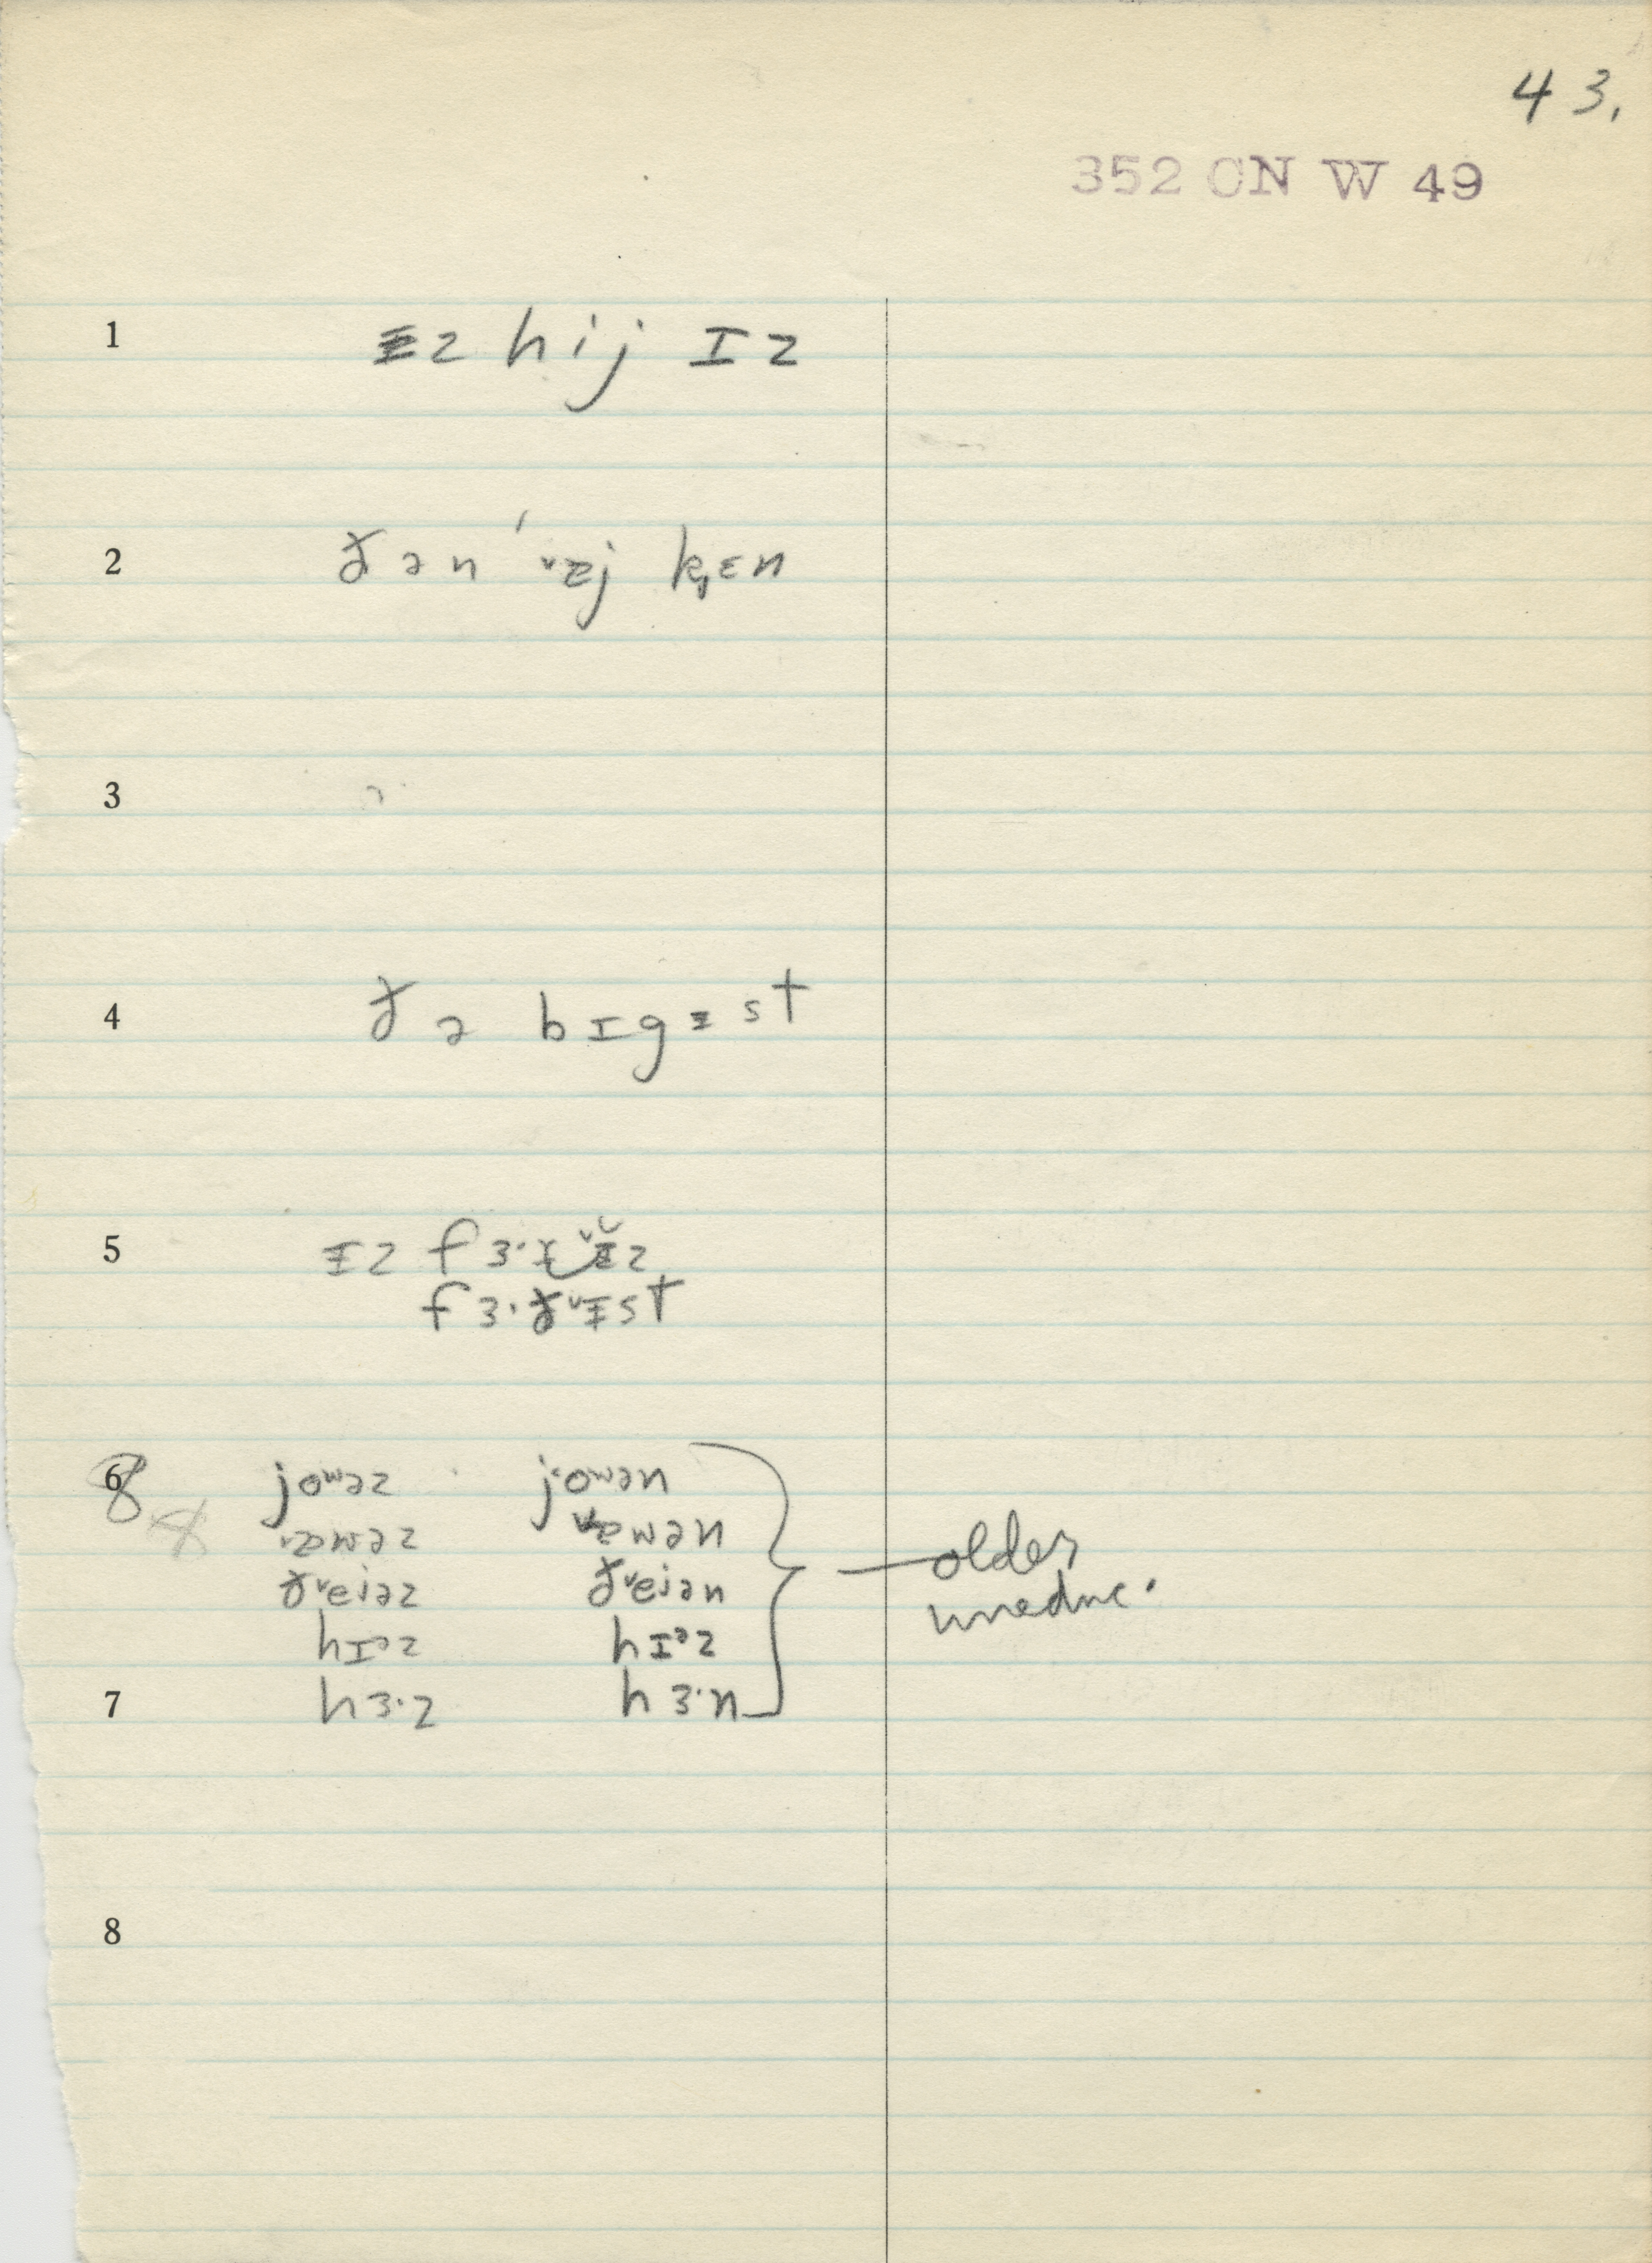 43.
352 CN W 49
1 ᵻz hij ɪz
2 ðən ˈᵛᴂj k̟ɛn
3 ə
4 ðə bɪgᵻst
5 ᵻz fɜ·ðᵛᵻz
fɜ·ðᵛᵻst
6 8 joʷəz joʷən
8 ᴂwəz ᴂwən
ðᵛeiəz ðᵛeiən
hɪᵊz hɪᵊz
7 hɜ·z hɜ·n
older
uneduc.
8